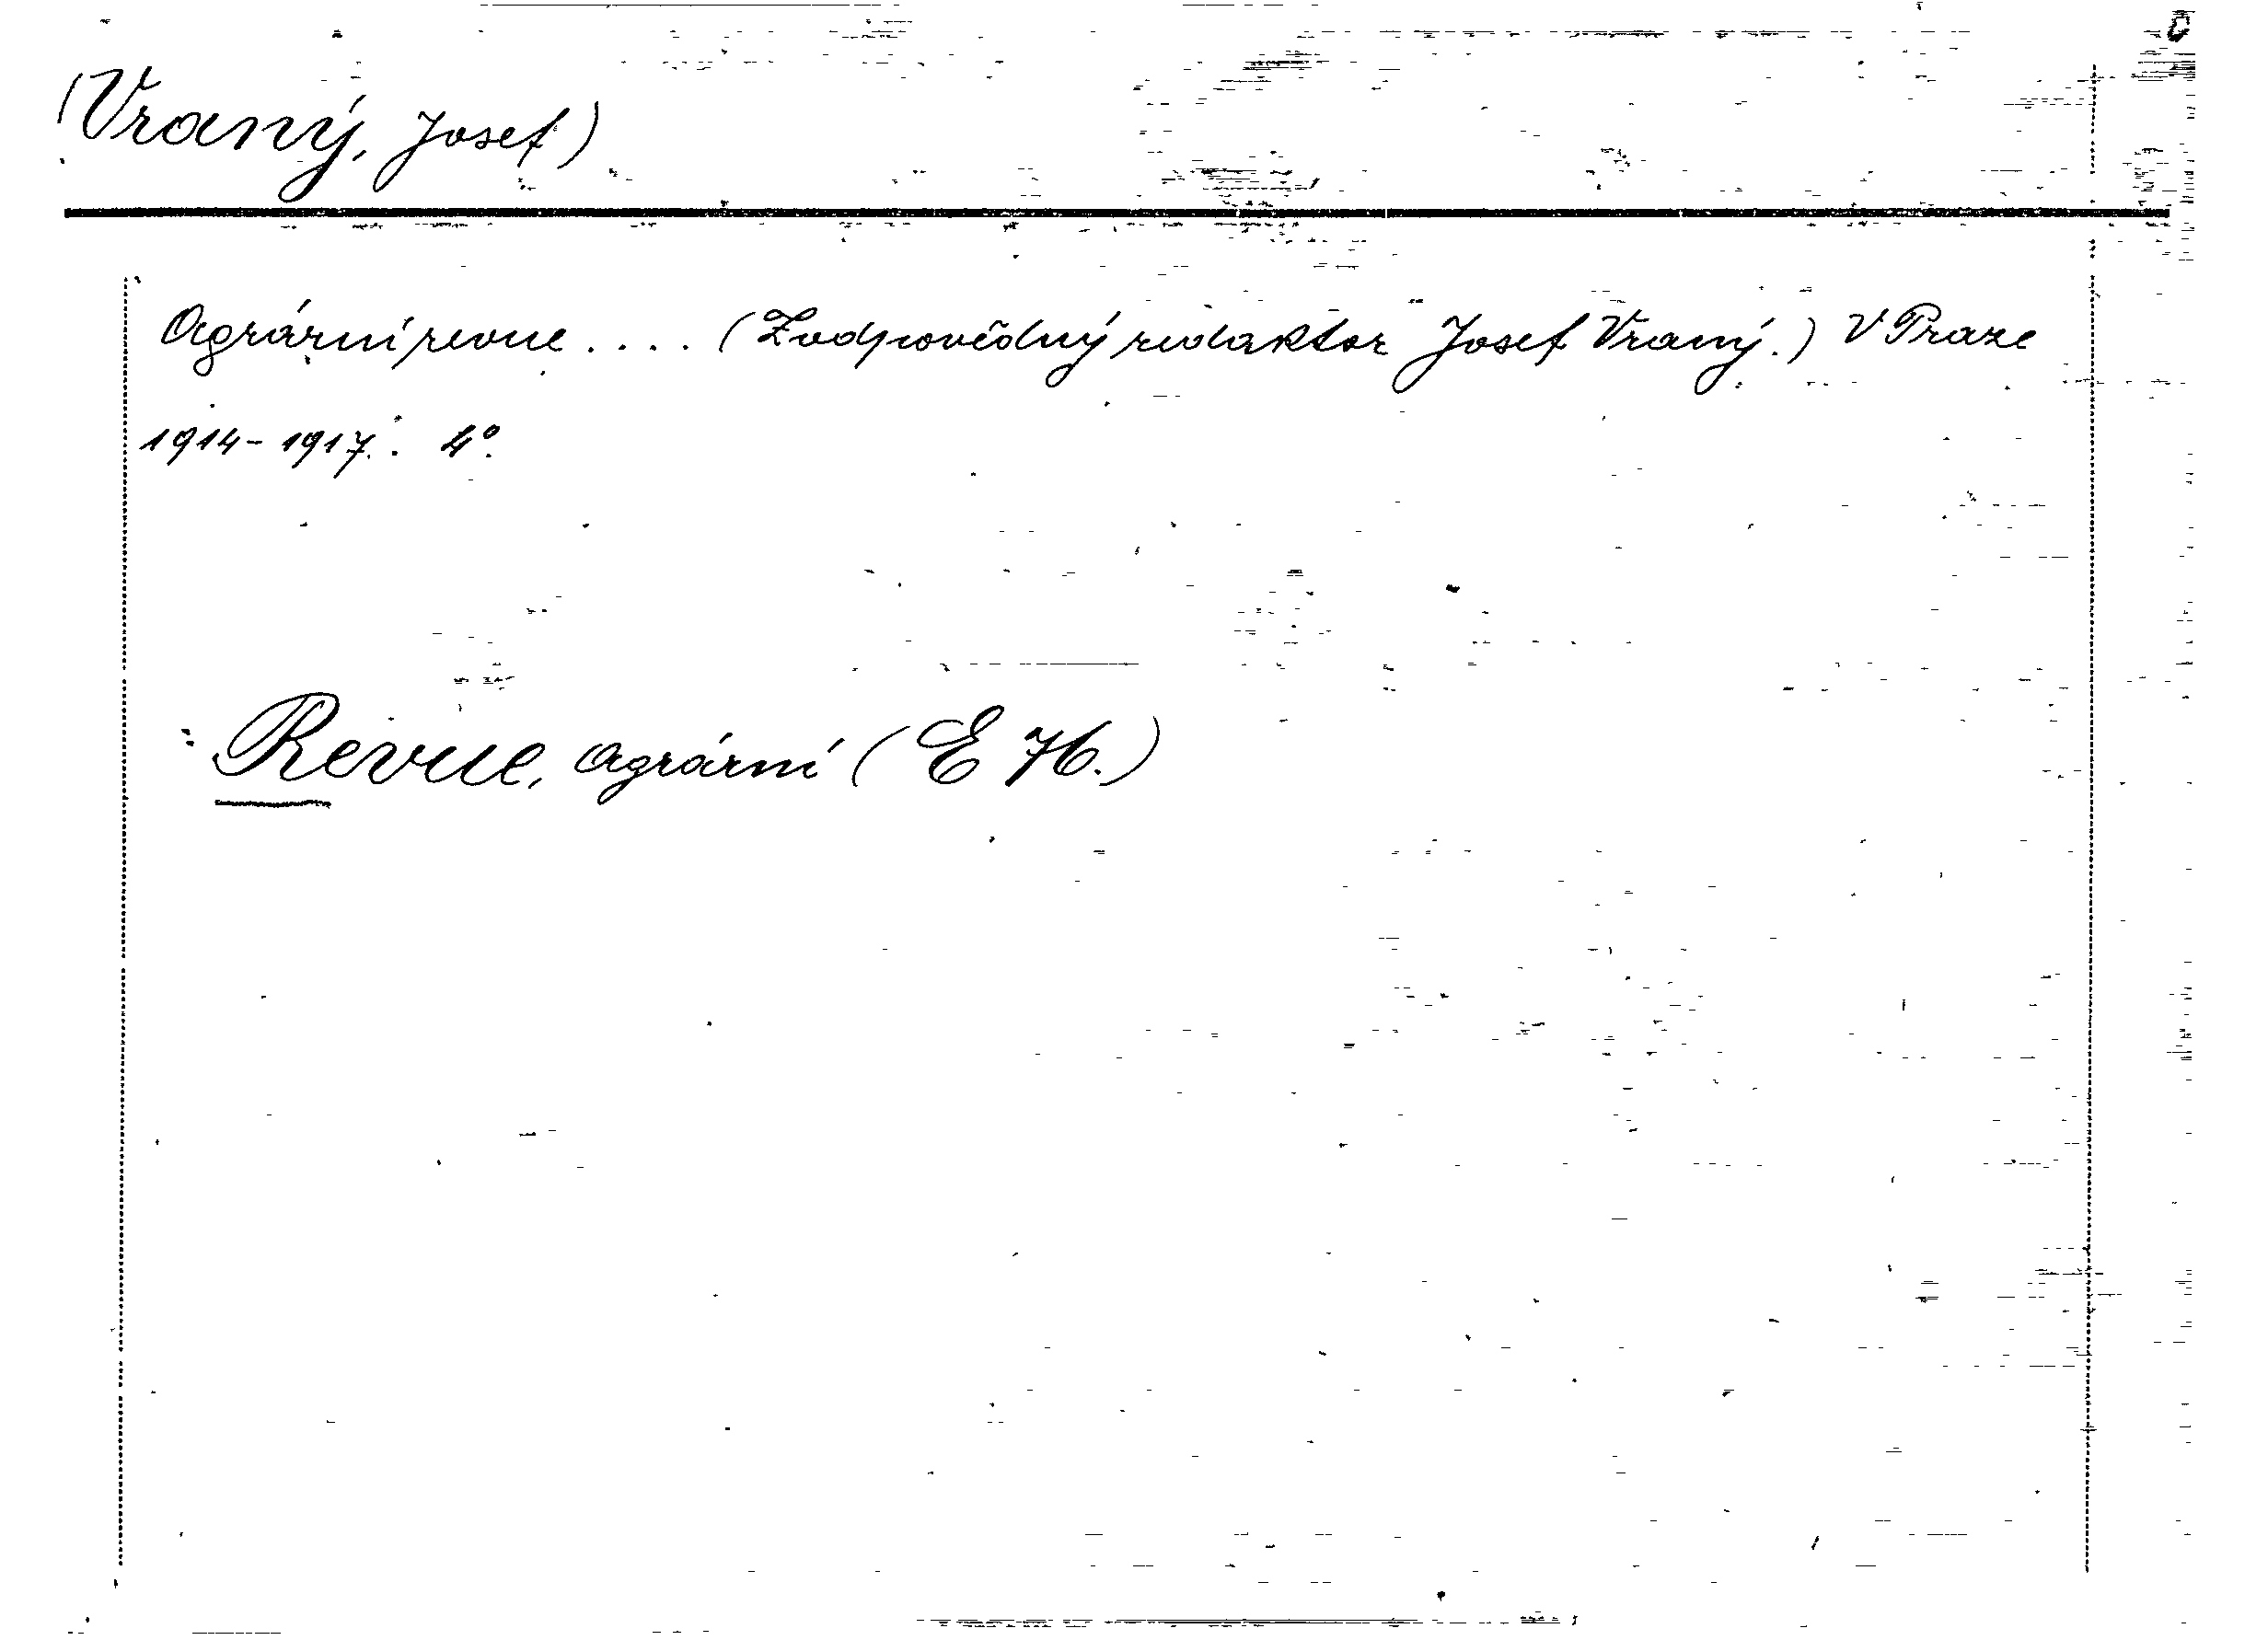 (Vraný, Josef)
Agrární revue .... (Zodpovědný redaktor Josef Vraný.) V Praze
1914-1917. 4°.
Revue, agrární (E 76.)